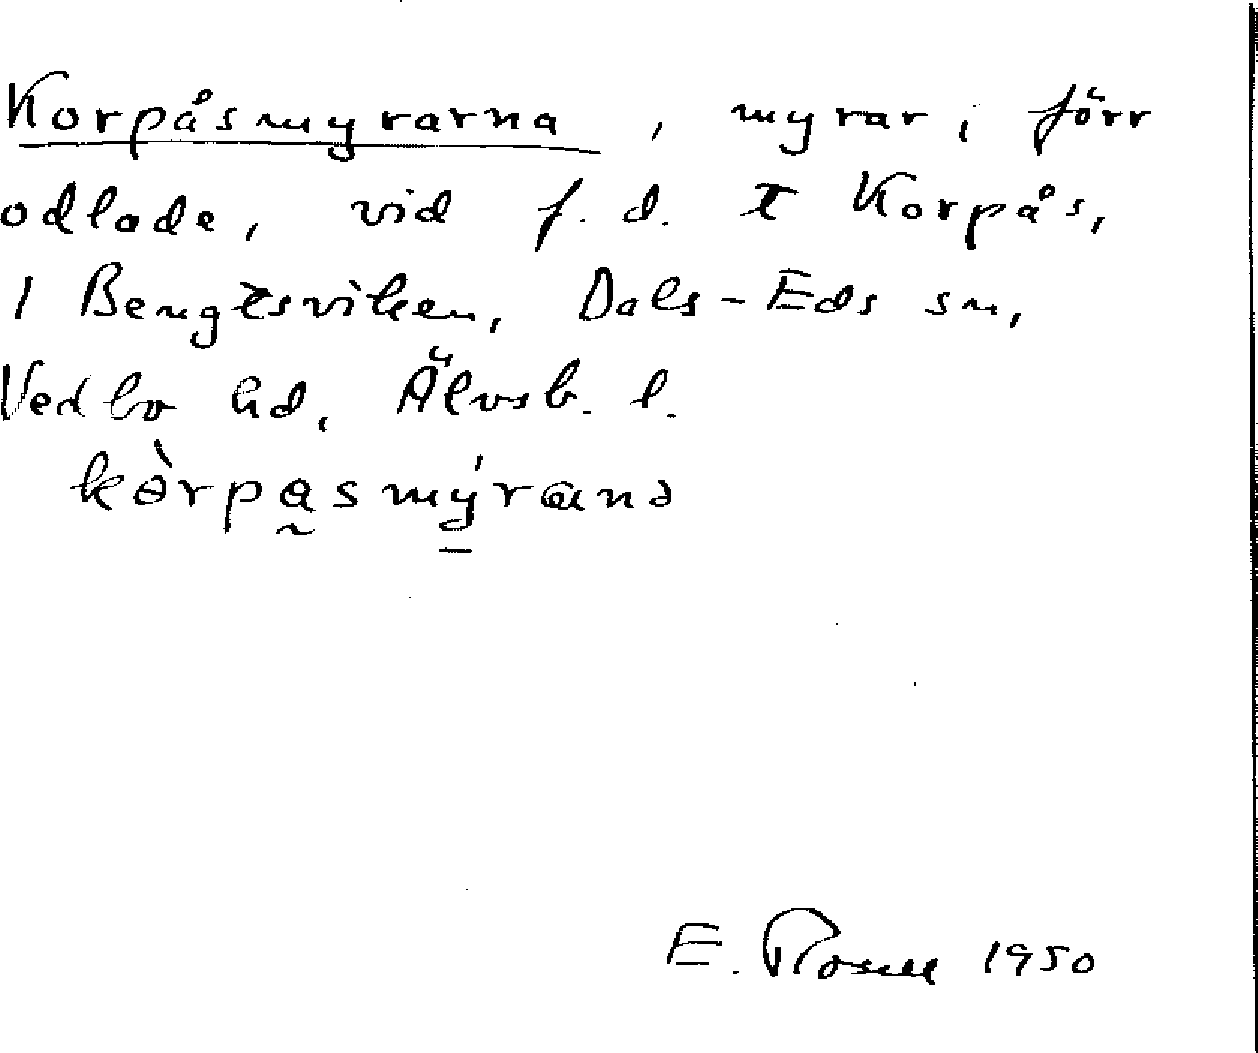 Korpåsmyrarna, myrar, förr
odlade, vid f. d. t Korpås,
1 Bengtsviken, Dals-Eds sn,
Vedbo hd, Älvsb. l.
kɵ̀rpa̰smý̱rɑnə
E. 1950